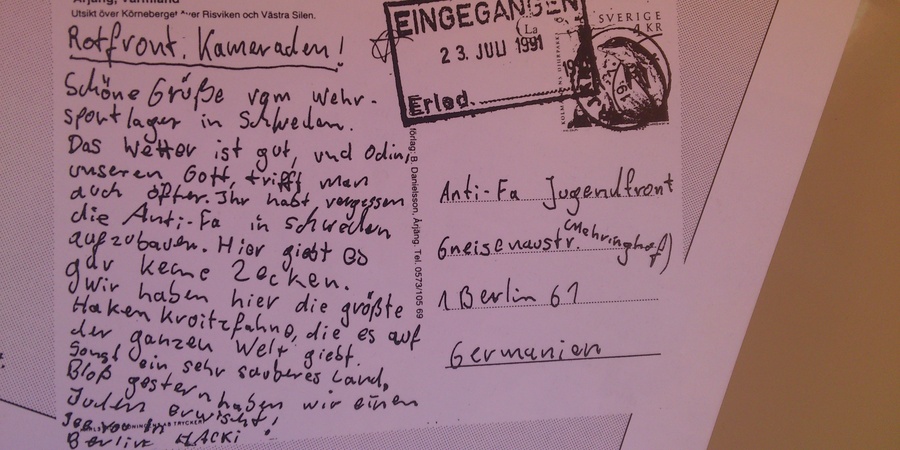 Årjäng, Värmland
Utsikt över Körneberget över Risviken och Västra Silen.
Rotfront, Kameraden!
Schöne Größe vom Wehr-
sportlager in Schweden.
Das Wetter ist gut, und Odin,
unseren Gott, trifft man
auch öfter. Ihr habt vergessen
die Anti-Fa in Schweden
aufzubauen. Hier giebt es
gar keine Zecken.
Wir haben hier die größte
Hakenkroitzfahne, die es auf
der ganzen Welt giebt.
Sonst ein sehr sauberes Land,
Bloß gestern haben wir einen
Juden erwischt!
See you in
Berlin HACKI
förlag: B. Danielsson, Årjäng. Tel. 0573/105 69
EINGEGANGEN
23. JULI 1991
Erled.
SVERIGE
KR
Anti-Fa Jugendfront
Gneisenaustr. (Mehringhof)
1 Berlin 61
Germanien